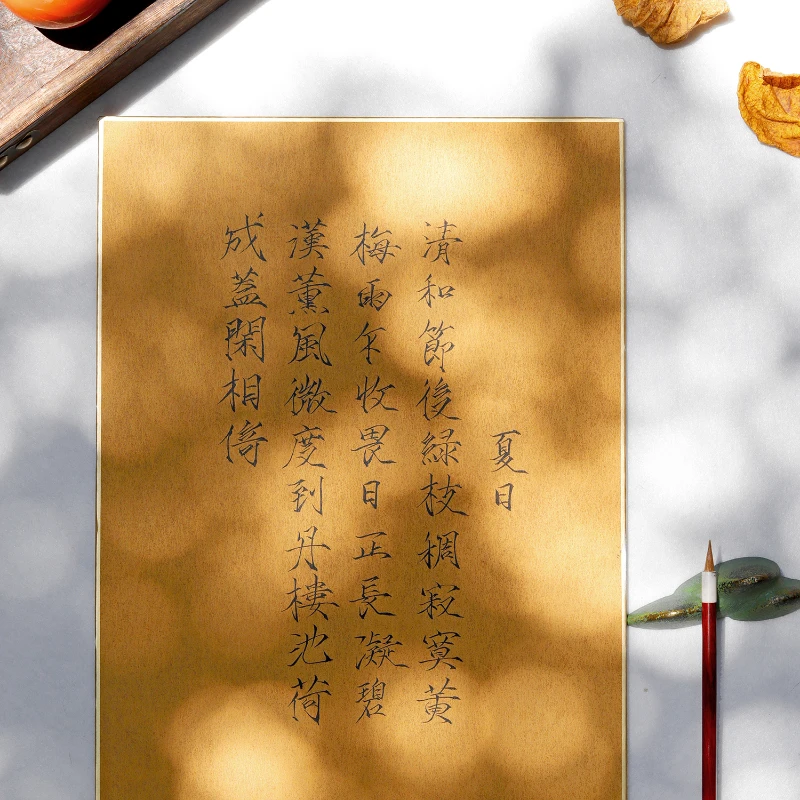 夏日
清和節後綠枝稠寂寞黃
梅雨乍收畏日正長凝碧
漢薰風微度到丹樓池荷
成蓋閑相倚